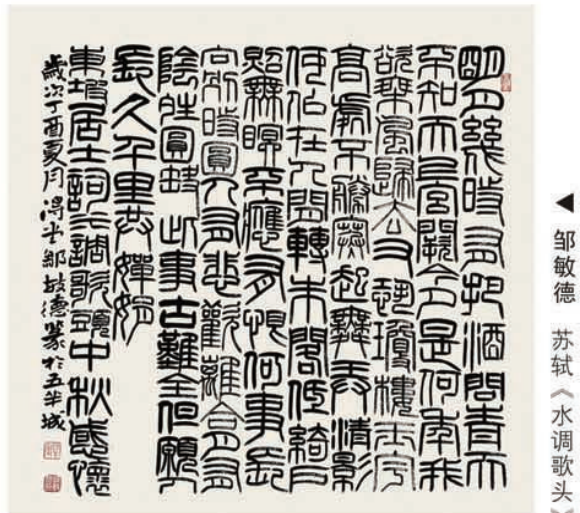 明月幾時有把酒問青天
不知天上宮闕今夕是何年我
欲乘風歸去又恐瓊樓玉宇
高處不勝寒起舞弄清影
何似在人間轉朱閣低綺戶
照無眠不應有恨何事長
向別時圓人有悲歡離合月有
陰晴圓缺此事古難全但願人
長久千里共嬋娟
東坡居士詞水調歌頭中秋感懷
歲次丁酉夏月鄒敏德篆於五羊城
◀ 邹敏德 苏轼《水调歌头》